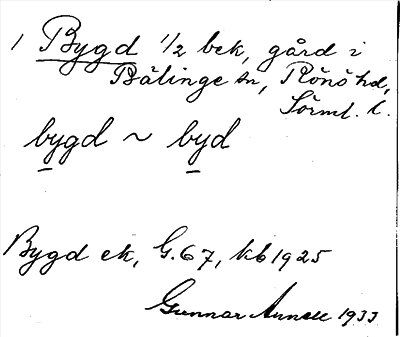 1 Bygd 1/2 bek, gård i
Bälinge sn, Rönö hd,
Sörml. l.
bygd ~ byd
Bygd ek, G.67, kb 1925
Gunnar Annell 1933